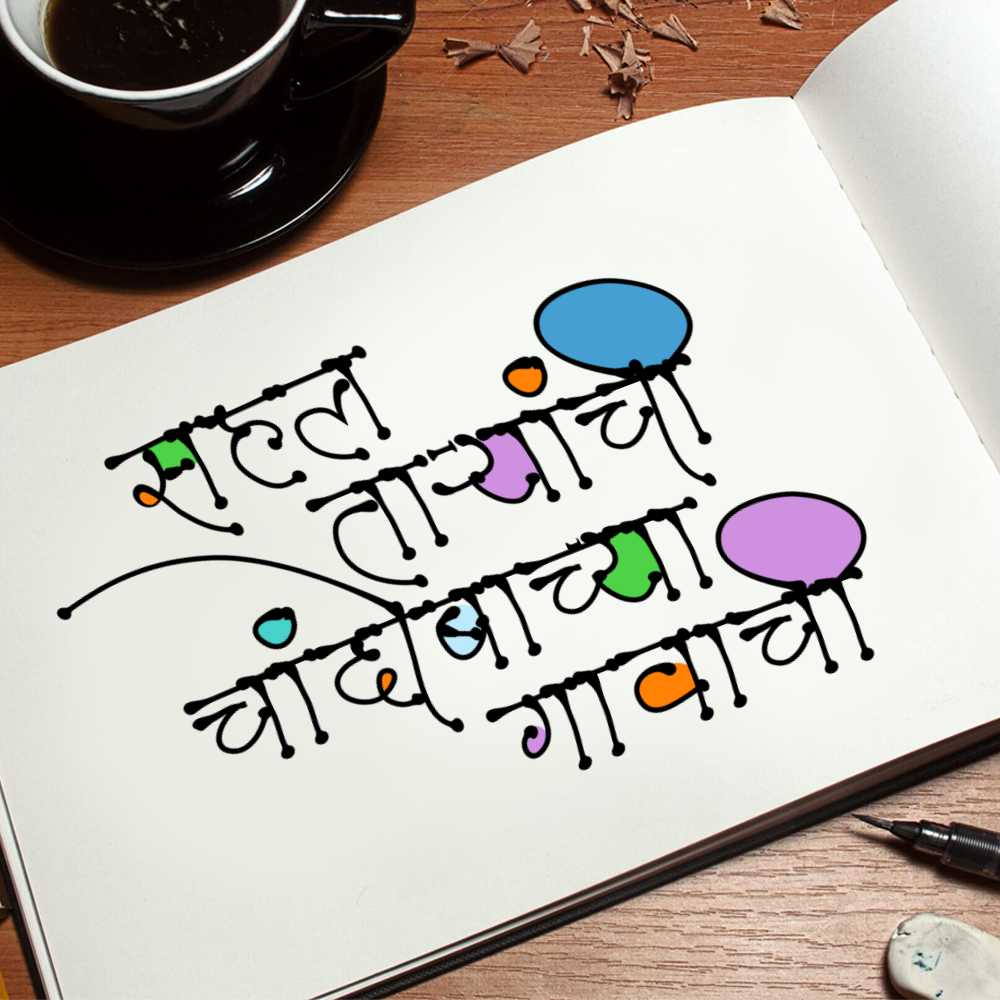 सहल
ताऱ्यांची
चांदोबाच्या
गावाची